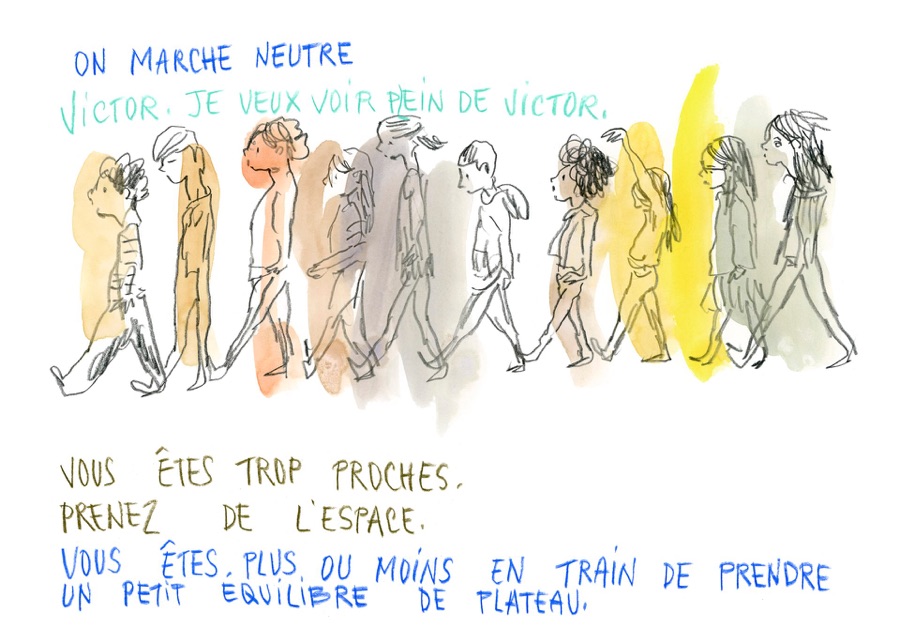 ON MARCHE NEUTRE
VICTOR. JE VEUX VOIR PLEIN DE VICTOR.
VOUS ÊTES TROP PROCHES.
PRENEZ DE L'ESPACE.
VOUS ÊTES PLUS OU MOINS EN TRAIN DE PRENDRE
UN PETIT EQUILIBRE DE PLATEAU.